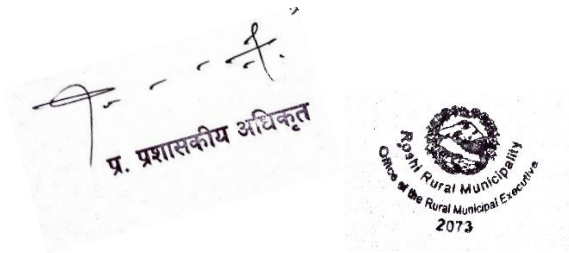 प्र. प्रशासकीय अधिकृत
Roshi Rural Municipality
Office of the Rural Municipal Executive
2073